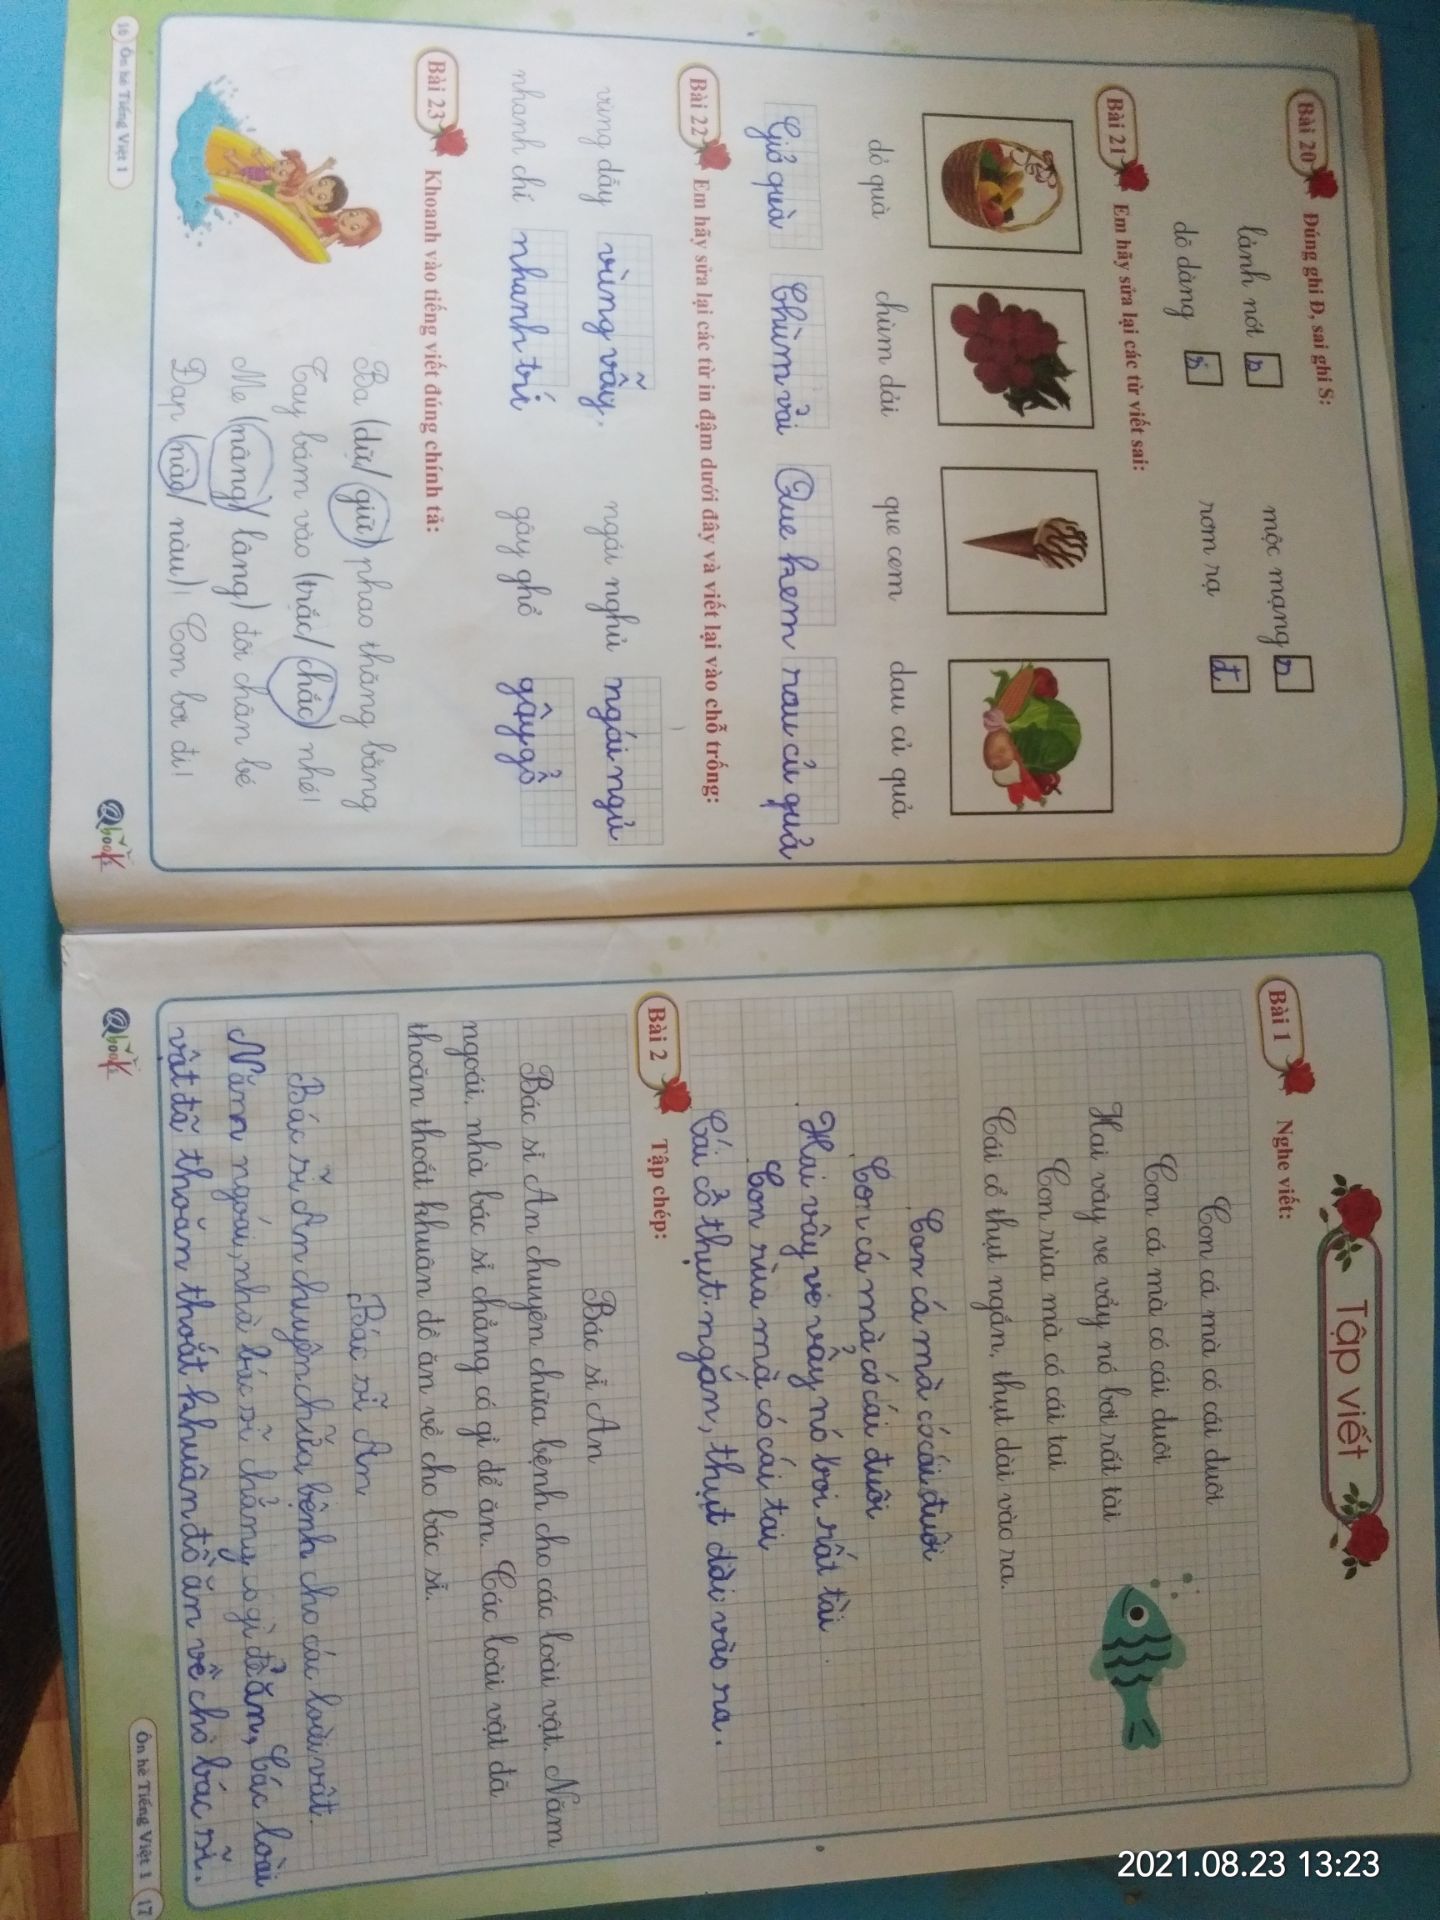 Bài 20 Đúng ghi Đ, sai ghi S:
lảnh nót s mộc mạng s
dô dàng s rơm rạ đ
Bài 21 Em hãy sửa lại các từ viết sai:
dỏ quà chùm dải que cem dau củ quả
Giỏ quà Chùm vải Que kem rau củ quả
Bài 22 Em hãy sửa lại các từ in đậm dưới đây và viết lại vào chỗ trống:
vùng dẫy vùng vẫy, ngái nghủ ngái ngủ
nhanh chí nhanh trí gây ghổ gây gổ
Bài 23 Khoanh vào tiếng viết đúng chính tả:
Ba (dữ/ giữ) phao thăng bằng
Tay bám vào (trắc/ chắc) nhé!
Mẹ (nâng/ lâng) đôi chân bé
Đạp (nào/ nàu)! Con bơi đi!
16 Ôn hè Tiếng Việt 1
Qbooks
Tập viết
Bài 1 Nghe viết:
Con cá mà có cái đuôi
Con cá mà có cái đuôi
Hai vây ve vẩy nó bơi rất tài
Con rùa mà có cái tai
Cái cổ thụt ngắn, thụt dài vào ra.
Con cá mà có cái đuôi
Con cá mà có cái đuôi
Hai vây ve vẩy nó bơi rất tài
Con rùa mà có cái tai
Cái cổ thụt ngắn, thụt dài vào ra.
Bài 2 Tập chép:
Bác sĩ An
Bác sĩ An chuyên chữa bệnh cho các loài vật. Năm
ngoái, nhà bác sĩ chẳng có gì để ăn. Các loài vật đã
thoăn thoắt khuân đồ ăn về cho bác sĩ.
Bác sĩ An
Bác sĩ An chuyên chữa bệnh cho các loài vật.
Năm ngoái, nhà bác sĩ chẳng có gì để ăn, Các loài
vật đã thoăn thoắt khuân đồ ăn về cho bác sĩ.
Qbooks
Ôn hè Tiếng Việt 1 17
2021.08.23 13:23